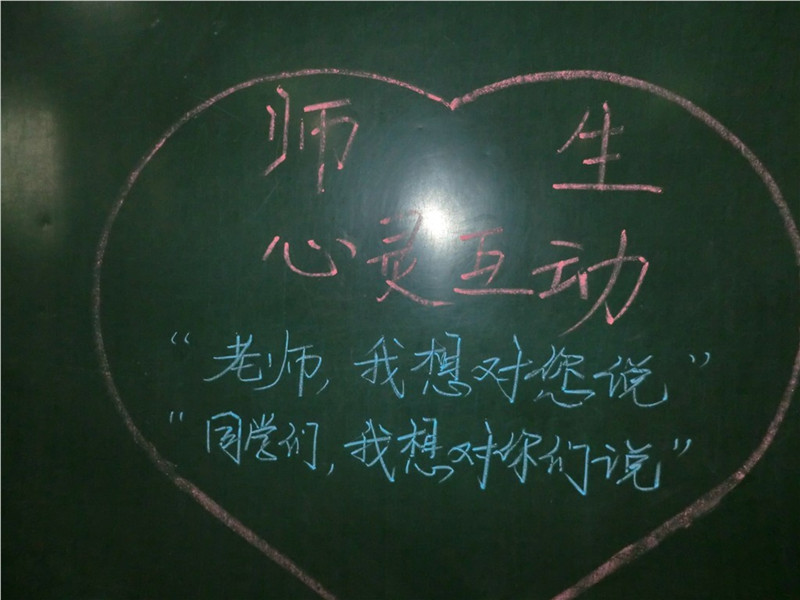 师 生
心灵互动
“老师,我想对您说”
“同学们,我想对你们说”